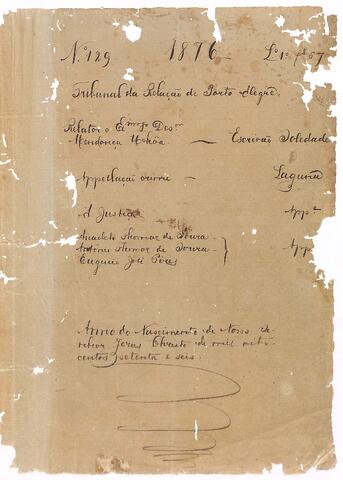 N.º 129 1876 L.º 1º fs 67
Tribunal da Relação de Porto Alegre.
Relator o Exmo. Desor
Mendonça Uchôa — Escrivão Soledade
Appellação crime — Laguna
A Justiça Appe
Anacleto de Souza
Antonio de Souza App
Eugenio José Pires
Anno do Nascimento de Nosso Se-
nhor Jesus Christo de mil oito
centos setenta e seis.